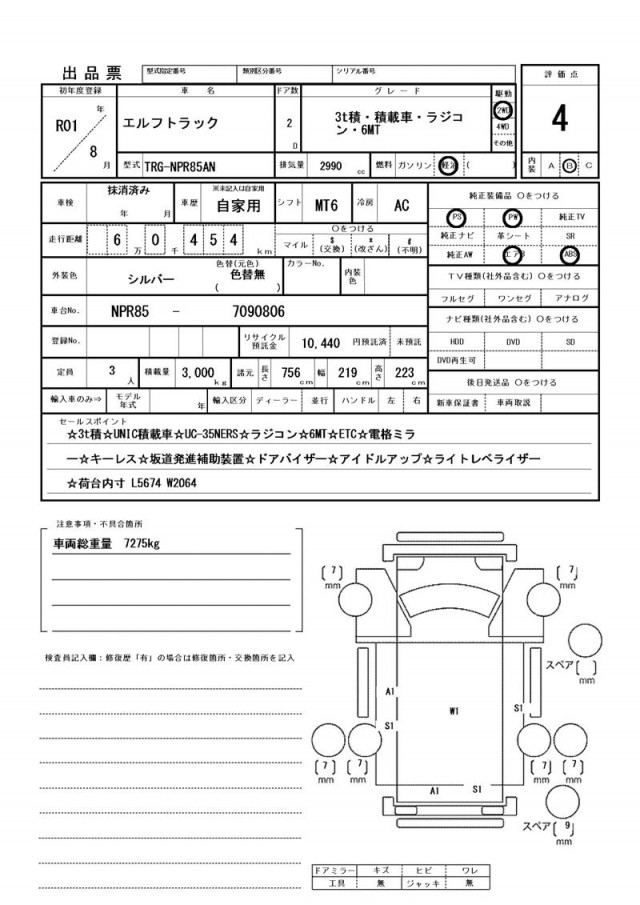 出品票 型式指定番号 類別区分番号 シリアル番号 評価点
初年度登録 車名 ドア数 グレード 駆動
R01 年 8 月 エルフトラック 2 D 3t積・積載車・ラジコン・6MT 2WD 4WD その他 4
型式 TRG-NPR85AN 排気量 2990 cc 燃料 ガソリン 軽油 ( ) 内装 A B C
車検 抹消済み 年 月 車歴 ※未記入は自家用 自家用 シフト MT6 冷房 AC 純正装備品 〇をつける
PS PW 純正TV
走行距離 6 万 0 千 4 5 4 km 〇をつける マイル $ (交換) * (改ざん) # (不明) 純正ナビ 革シート SR
純正AW エアB ABS
外装色 シルバー 色替(元色) 色替無 ( ) カラーNo. 内装色 TV種類(社外品含む) 〇をつける
フルセグ ワンセグ アナログ
車台No. NPR85 - 7090806 ナビ種類(社外品含む) 〇をつける
登録No. リサイクル預託金 10,440 円預託済 未預託 HDD DVD SD
DVD再生可
定員 3 人 積載量 3,000 kg 諸元 長さ 756 cm 幅 219 cm 高さ 223 cm 後日発送品 〇をつける
輸入車のみ⇒ モデル年式 年 輸入区分 ディーラー 並行 ハンドル 左 右 新車保証書 車両取説
セールスポイント
☆3t積☆UNIC積載車☆UC-35NERS☆ラジコン☆6MT☆ETC☆電格ミラ
ー☆キーレス☆坂道発進補助装置☆ドアバイザー☆アイドルアップ☆ライトレベライザー
☆荷台内寸 L5674 W2064
注意事項・不具合箇所
車両総重量 7275kg
( 7 ) mm ( 7 ) mm
検査員記入欄：修復歴「有」の場合は修復箇所・交換箇所を記入
スペア ( ) mm
A1
W1 S1
S1
( 7 ) mm ( 7 ) mm ( 7 ) mm ( 7 ) mm
A1 S1
スペア ( 9 ) mm
ドアミラー キズ ヒビ ワレ
工具 無 ジャッキ 無